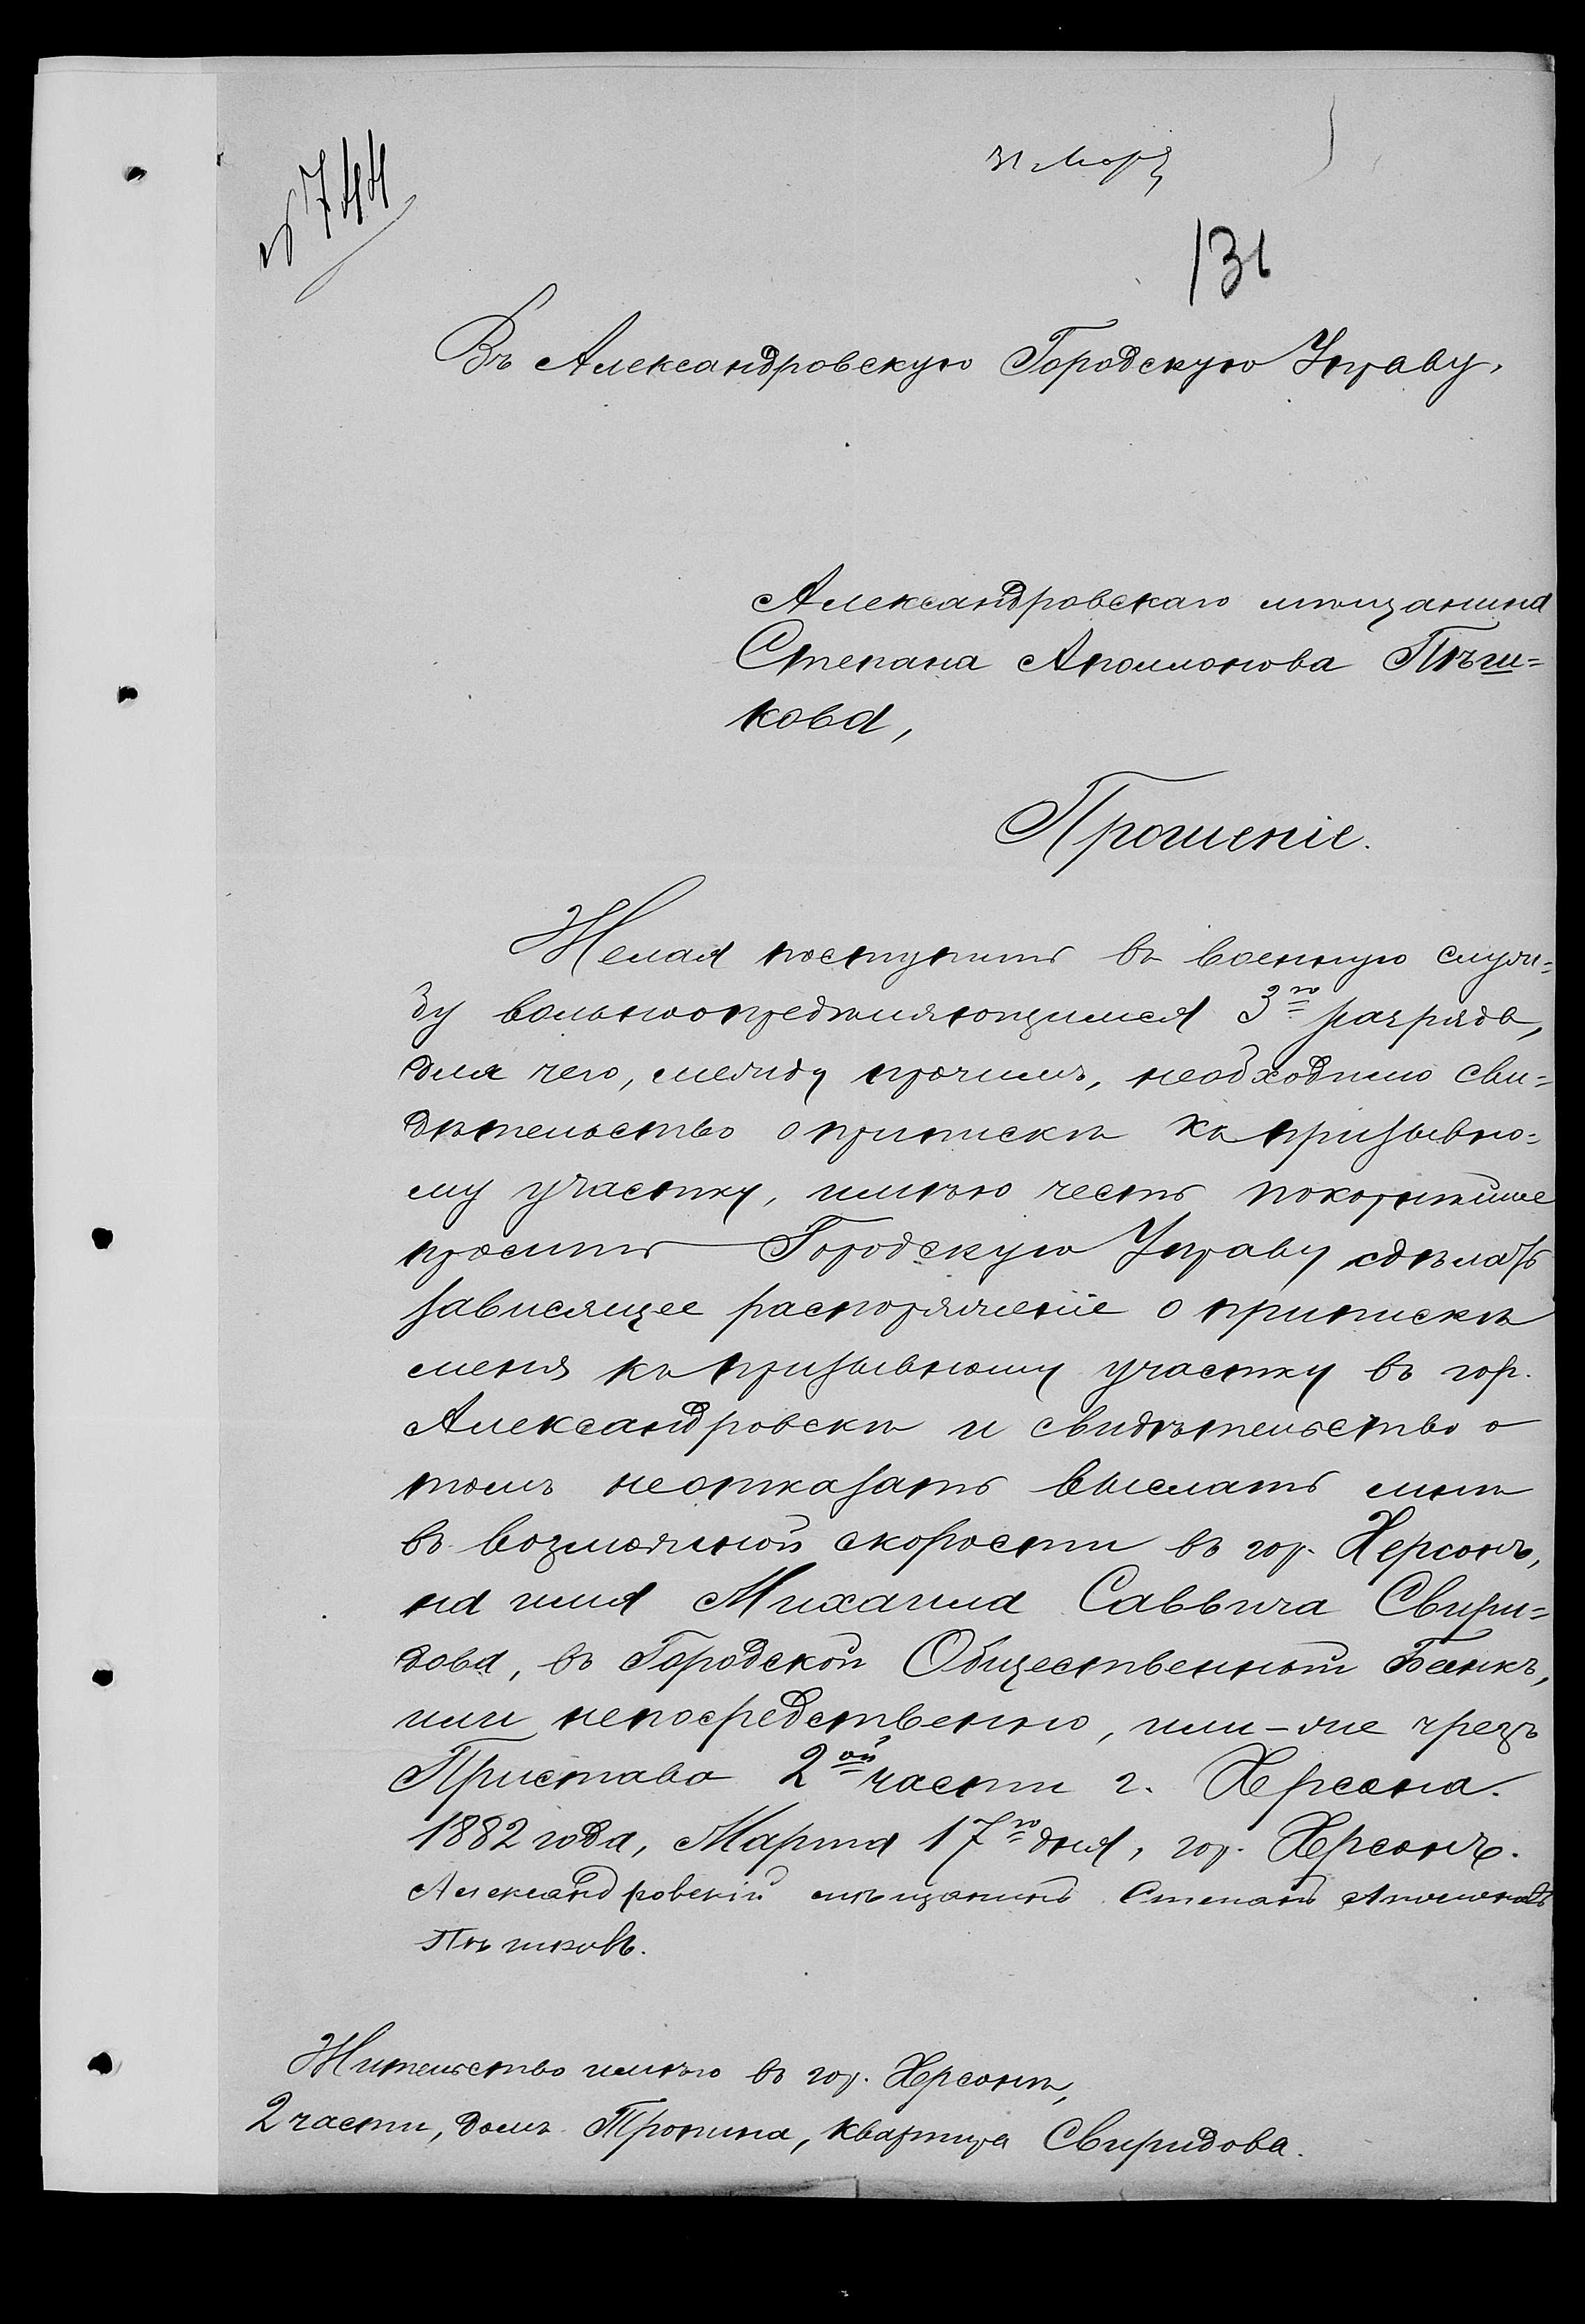 № 744
31 Март
131
Въ Александровскую Городскую Управу.
Александровскаго мѣщанина
Степана Аполлонова Пѣш=
кова,
Прошеніе.
Желая поступить въ военную служ=
бу вольноопредѣляющимся 3го разряда,
для чего, между прочимъ, необходимо сви=
дѣтельство о припискѣ къ призывно=
му участку, имѣю честь покорнѣйше
просить Городскую Управу сдѣлать
зависящее распоряженіе о припискѣ
меня къ призывному участку въ гор.
Александровскѣ и свидѣтельство о
томъ неотказать выслать мнѣ
въ возможной скорости въ гор. Херсонъ,
на имя Михаила Саввича Свири=
дова, въ Городской Общественный Банкъ,
или непосредственно, или-же чрезъ
Пристава 2ой части г. Херсона.
1882 года, Марта 17го дня, гор. Херсонъ.
Александровскій мѣщанинъ Степанъ Аполлоновъ
Пѣшковъ.
Жительство имѣю въ гор. Херсонѣ,
2 части, домъ Тропина, квартира Свиридова.